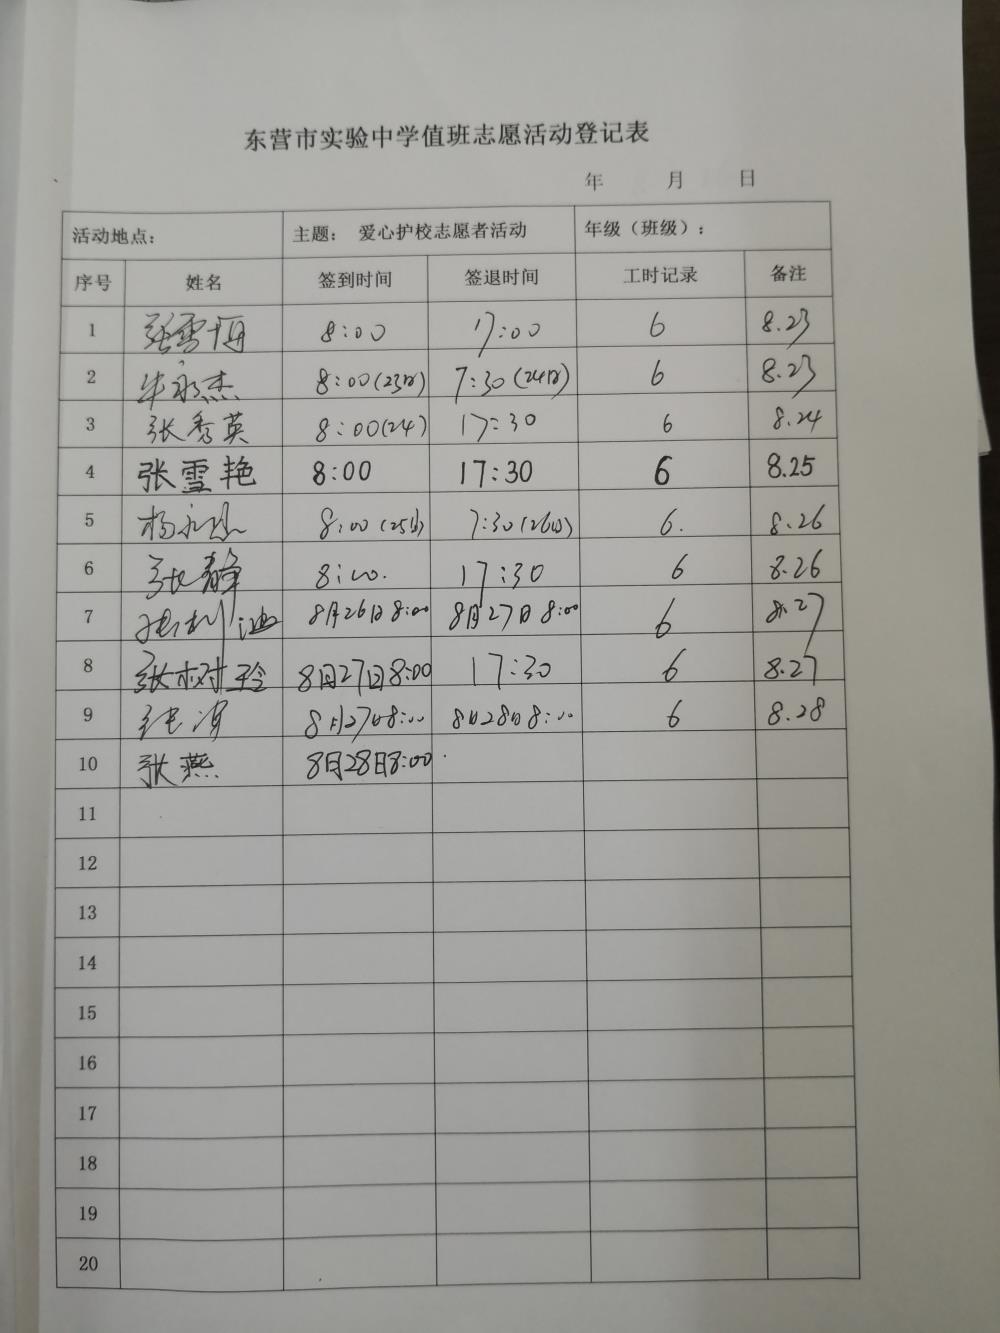 东营市实验中学值班志愿活动登记表
年 月 日
活动地点： 主题： 爱心护校志愿者活动 年级（班级）：
序号 姓名 签到时间 签退时间 工时记录 备注
1 张雪梅 8:00 17:00 6 8.23
2 牛永杰 8:00(23日) 7:30(24日) 6 8.23
3 张秀英 8:00(24) 17:30 6 8.24
4 张雪艳 8:00 17:30 6 8.25
5 杨永 8:00(25日) 7:30(26日) 6. 8.26
6 张静 8:00. 17:30 6 8.26
7 8月26日8:00 8月27日8:00 6 8.27
8 张树玲 8月27日8:00 17:30 6 8.27
9 8月27日8:00 8月28日8:00 6 8.28
10 张燕 8月28日8:00
11
12
13
14
15
16
17
18
19
20